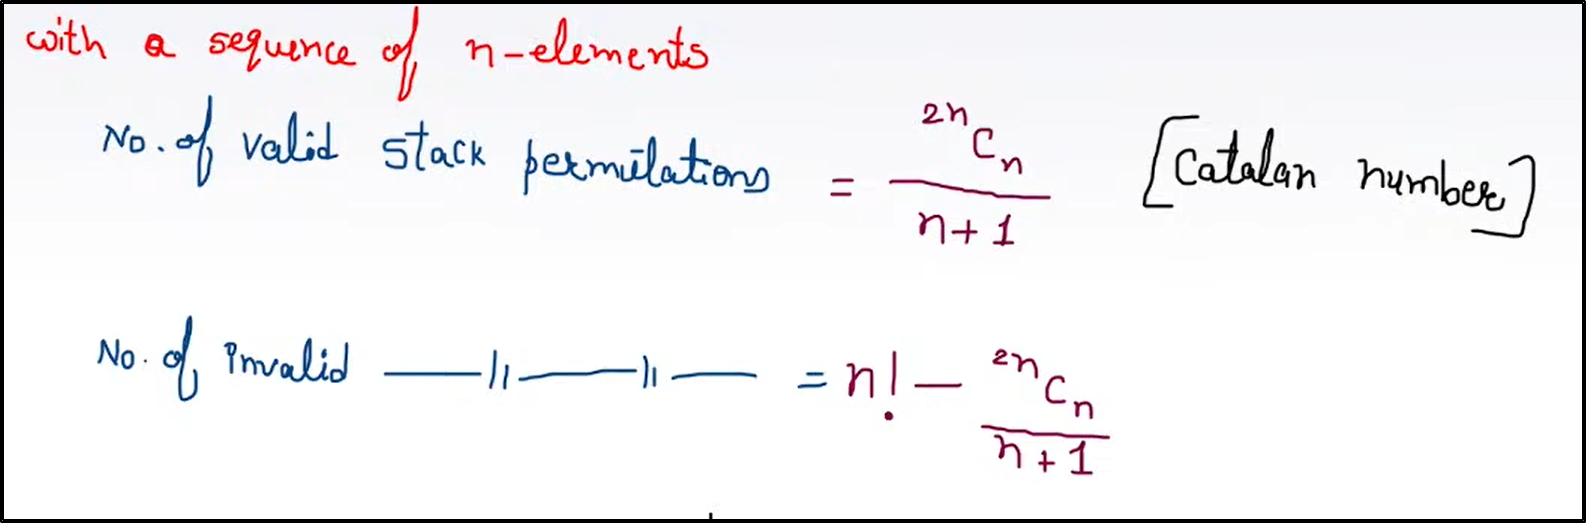 with a sequence of n-elements
No. of valid stack permutations = ²ⁿCₙ / n+1 [Catalan number]
No. of invalid —〃—〃— = n! — ²ⁿCₙ / n+1